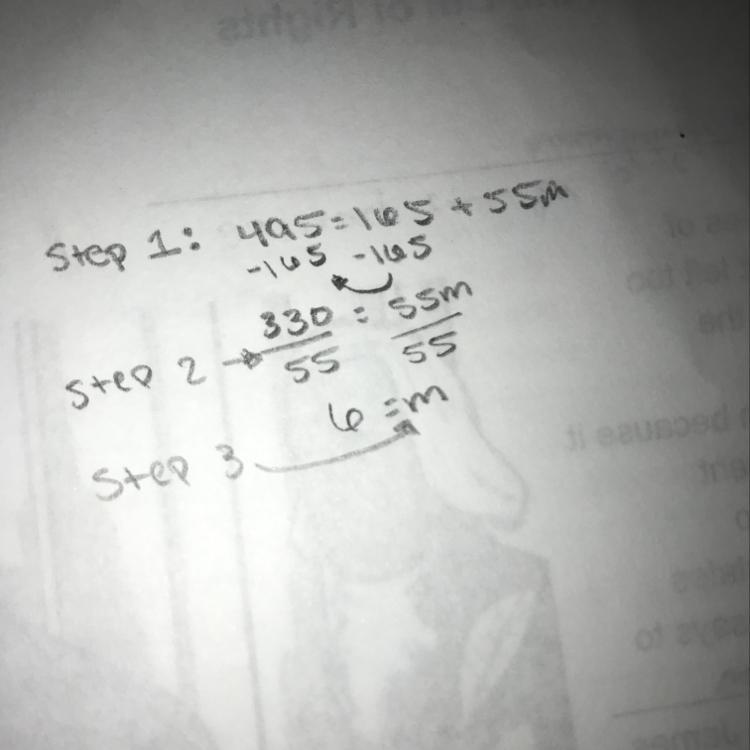 of Rights
Step 1: 495 = 165 + 55m
-165 -165
Step 2 → 330 = 55m
55 55
6 = m
Step 3
because it